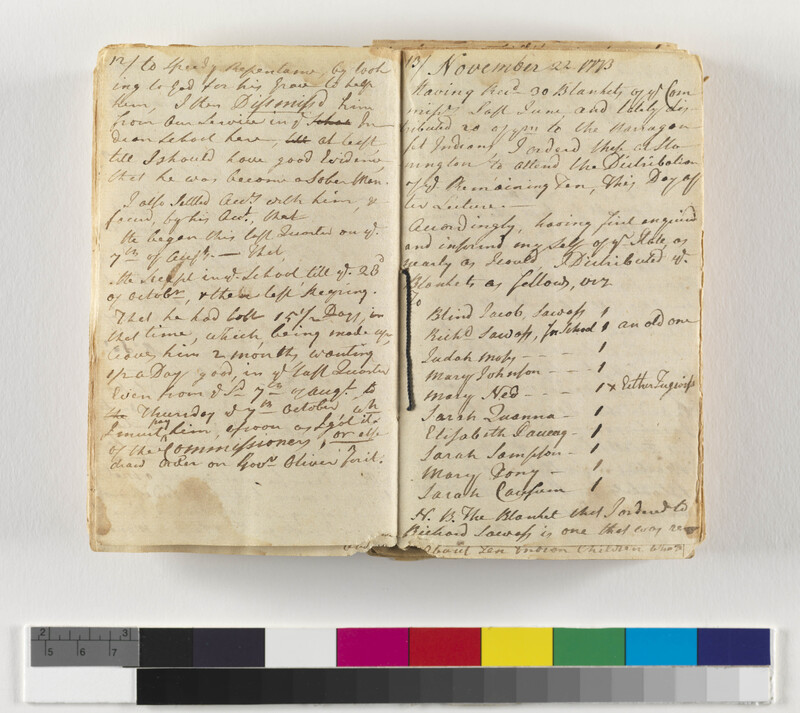 12/ to Speedy Repentance, by look
ing to God for his Grace to help
them, I then Dismiss'd him
from our Service in ye School In
dian School here, till at least
till I should have good Evidence
that he was become a Sober Man.
I also Settled Acct. with him, &
found, by his Acct, that
He began this last Quarter on ye
7th of Augt. — That,
He kept in ye School till ye 28d
of October, & then left keeping.
That he had lost 15 1/2 Days, in
that time, which, being made up
leave him 2 months wanting
1/2 a Day good, in ye last Quarter
Even from ye Sd 7th of Augt. to
Thursday ye 7th October, wh
I must pay him, as soon as I get it
of the Commissioners, or else
draw order on Govr Oliver for it.
13/ November 22 1773
Having Recd 30 Blankets of ye Com
missrs Last June, and lately Dis
tributed 20 of ym to the Narragan
set Indians, I orderd those at Sto
nington to attend the Distribution
of ye Remaining Ten, this Day af
ter Lecture.—
Accordingly, having first enquired
and informd my Self of ye State, as
nearly as I could, I Distributed ye
Blankets as follows, viz
To
Blind Jacob, Sawass 1
Richd Sawass, In School 1 an old one
Judah Moss - - - 1
Mary Johnson - - - 1
Mary Ned - - - 1 & Esther
Sarah Quanna - 1
Elisabeth - 1
Sarah Sampson - 1
Mary Tony - 1
Sarah 1
N. B. The Blanket that I orderd to
Richard Sawass is one that was
about Ten Indian Children
2 3
5 6 7